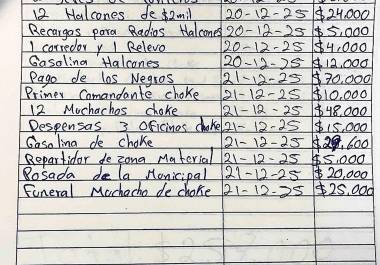 12 Halcones de $2mil 20-12-25 $24,000
Recargas para Radios Halcones 20-12-25 $5,000
1 corredor y 1 Relevo 20-12-25 $4,000
Gasolina Halcones 20-12-25 $12,000
Pago de los Negros 21-12-25 $70,000
Primer Comandante choke 21-12-25 $10,000
12 Muchachos choke 21-12-25 $48,000
Despensas 3 Oficinas choke 21-12-25 $15,000
Gasolina de choke 21-12-25 $29,600
Repartidor de zona Material 21-12-25 $5,000
Posada de la Municipal 21-12-25 $20,000
Funeral Muchacho de choke 21-12-25 $25,000